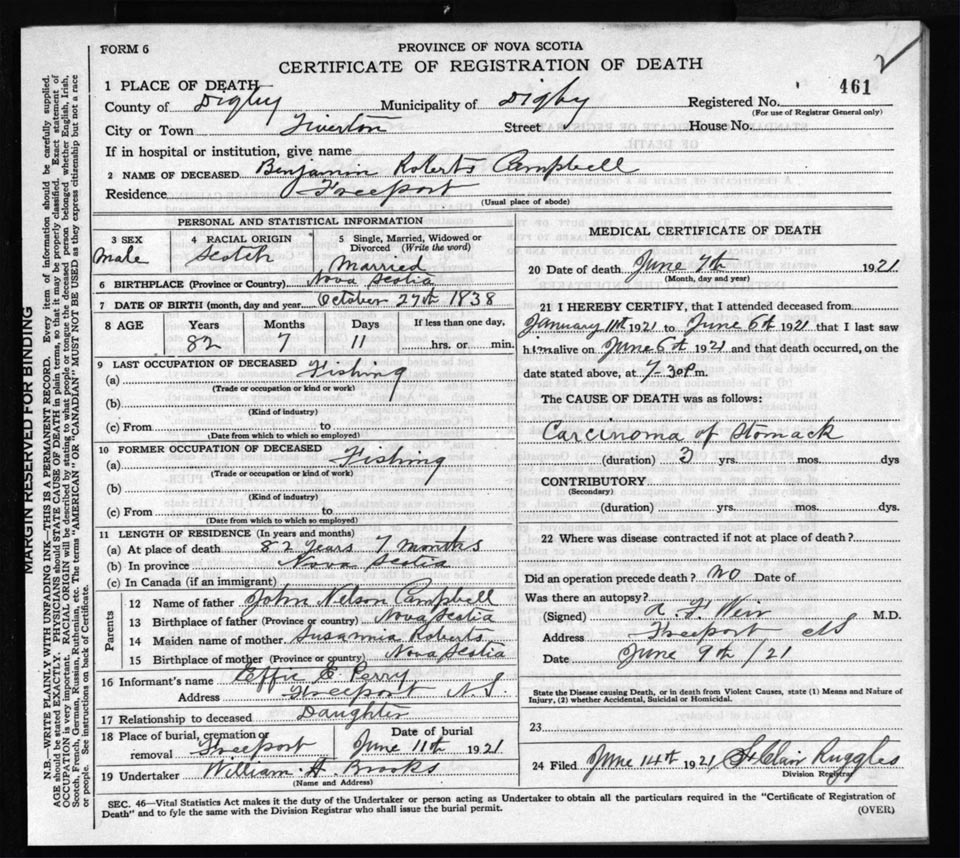 FORM 6
PROVINCE OF NOVA SCOTIA
CERTIFICATE OF REGISTRATION OF DEATH
1 PLACE OF DEATH 461
County of Digby Municipality of Digby Registered No.
(For use of Registrar General only)
City or Town Tiverton Street House No.
If in hospital or institution, give name
2 NAME OF DECEASED Benjamin Roberts Campbell
Residence Freeport
(Usual place of abode)
PERSONAL AND STATISTICAL INFORMATION
3 SEX 4 RACIAL ORIGIN 5 Single, Married, Widowed or Divorced (Write the word)
Male Scotch Married
6 BIRTHPLACE (Province or Country) Nova Scotia
7 DATE OF BIRTH (month, day and year) October 27th 1838
8 AGE Years Months Days If less than one day,
82 7 11 hrs. or min.
9 LAST OCCUPATION OF DECEASED
(a) Fishing
(Trade or occupation or kind or work)
(b)
(Kind of industry)
(c) From to
(Date from which to which so employed)
10 FORMER OCCUPATION OF DECEASED
(a) Fishing
(Trade or occupation or kind or work)
(b)
(Kind of industry)
(c) From to
(Date from which to which so employed)
11 LENGTH OF RESIDENCE (In years and months)
(a) At place of death 82 Years 7 months
(b) In province Nova Scotia
(c) In Canada (if an immigrant)
Parents
12 Name of father John Nelson Campbell
13 Birthplace of father (Province or country) Nova Scotia
14 Maiden name of mother Susannia Roberts
15 Birthplace of mother (Province or country) Nova Scotia
16 Informant's name Effie E. Perry
Address Freeport N.S.
17 Relationship to deceased Daughter
18 Place of burial, cremation or removal Freeport Date of burial June 11th 1921
19 Undertaker William A. Brooks
(Name and Address)
MEDICAL CERTIFICATE OF DEATH
20 Date of death June 7th 1921
(Month, day and year)
21 I HEREBY CERTIFY, that I attended deceased from
January 11th 1921 to June 6th 1921 that I last saw
him alive on June 6th 1921 and that death occurred, on the
date stated above, at 7.30 P.m.
The CAUSE OF DEATH was as follows:
Carcinoma of Stomack
(duration) 3 yrs. mos. dys
CONTRIBUTORY
(Secondary)
(duration) yrs. mos. dys.
22 Where was disease contracted if not at place of death?
Did an operation precede death? no Date of
Was there an autopsy?
(Signed) A F Weir M.D.
Address Freeport NS
Date June 9th /21
State the Disease causing Death, or in death from Violent Causes, state (1) Means and Nature of
Injury, (2) whether Accidental, Suicidal or Homicidal.
23
24 Filed June 14th 1921 St Clair Ruggles
Division Registrar
SEC. 46—Vital Statistics Act makes it the duty of the Undertaker or person acting as Undertaker to obtain all the particulars required in the "Certificate of Registration of
Death" and to fyle the same with the Division Registrar who shall issue the burial permit.
(OVER)
MARGIN RESERVED FOR BINDING
N.B.—WRITE PLAINLY WITH UNFADING INK—THIS IS A PERMANENT RECORD. Every item of information should be carefully supplied.
AGE should be stated EXACTLY. PHYSICIANS should STATE CAUSE OF DEATH in plain terms, so that it may be properly classified. Exact statement of
OCCUPATION is very important. RACIAL ORIGIN will be described by stating to what people or tongue the deceased person belonged whether English, Irish,
Scotch, French, German, Russian, Ruthenian, etc. The terms "AMERICAN" OR "CANADIAN" MUST NOT BE USED as they express citizenship but not a race
or people. See instructions on back of Certificate.